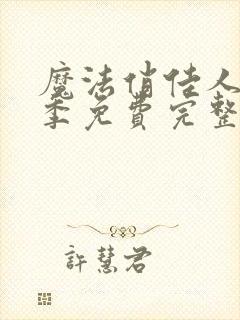 魔法俏佳人
季免费完整
許慧君